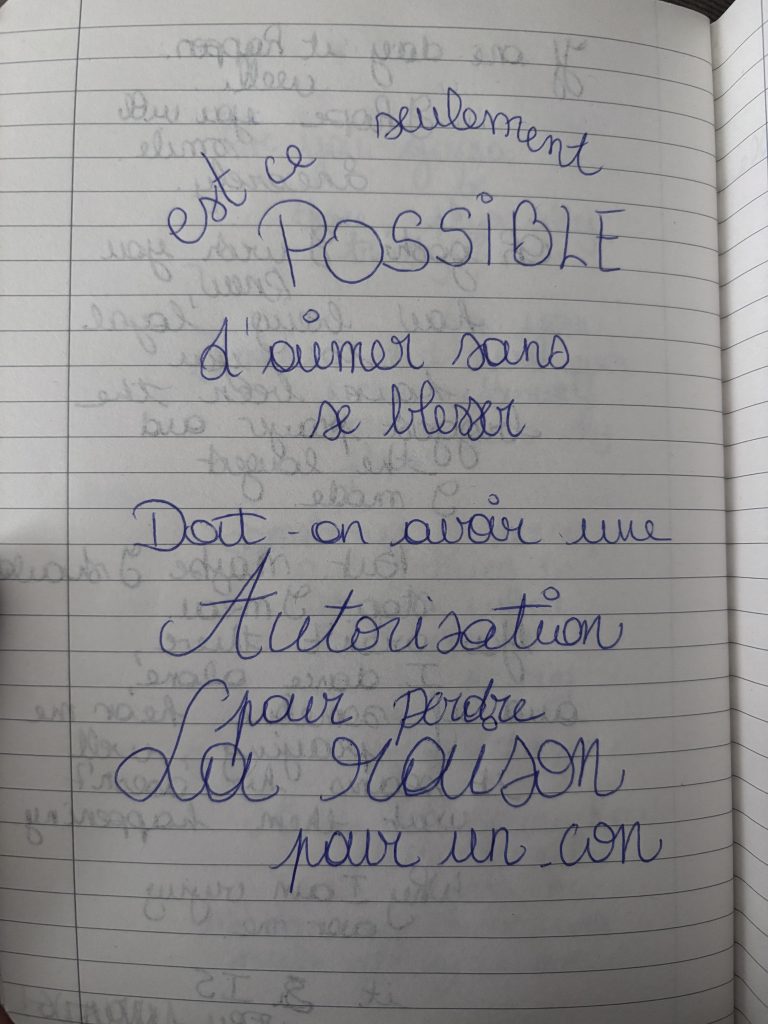 est ce seulement
POSSiBLE
d'aimer sans
se blesser
Doit-on avoir une
Autorisation
pour perdre
La raison
pour un con